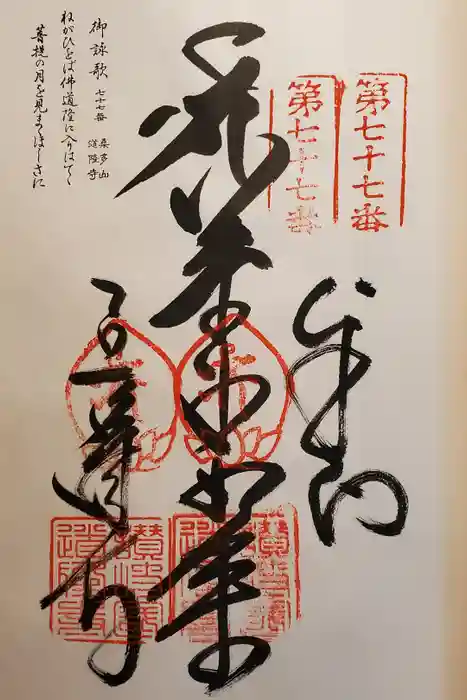 第七十七番
第七十七番
奉納
薬師如来
道隆寺
御詠歌 七十七番 桑多山 道隆寺
ねがひをば佛道隆に入はてゝ
菩提の月を見まくほしさに